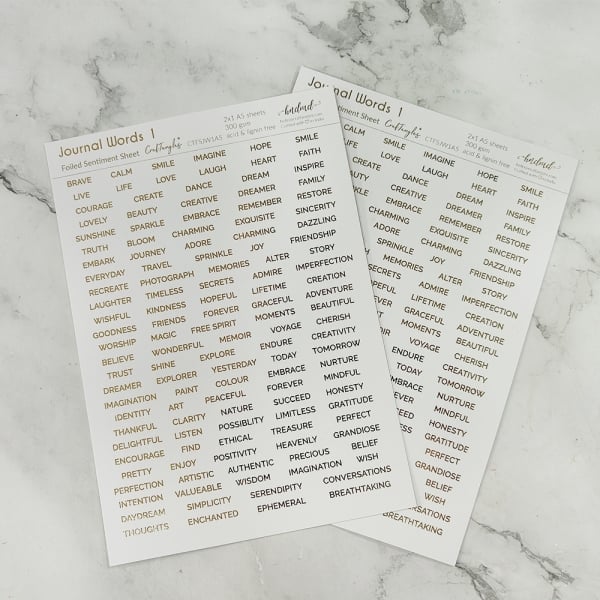 Journal Words 1
Foiled Sentiment Sheet
CTFSJW1A5
2x1 A5 sheets
300 gsm
acid & lignin free
hndmd
BRAVE CALM SMILE IMAGINE HOPE SMILE
LIVE LIFE LOVE LAUGH HEART FAITH
COURAGE CREATE DANCE DREAM INSPIRE
LOVELY BEAUTY CREATIVE DREAMER FAMILY
SUNSHINE SPARKLE EMBRACE REMEMBER RESTORE
TRUTH BLOOM CHARMING EXQUISITE SINCERITY
EMBARK JOURNEY ADORE CHARMING DAZZLING
EVERYDAY TRAVEL SPRINKLE JOY FRIENDSHIP
RECREATE PHOTOGRAPH MEMORIES ALTER STORY
LAUGHTER TIMELESS SECRETS ADMIRE IMPERFECTION
WISHFUL KINDNESS HOPEFUL LIFETIME CREATION
GOODNESS FRIENDS FOREVER GRACEFUL ADVENTURE
WORSHIP MAGIC FREE SPIRIT MOMENTS BEAUTIFUL
BELIEVE WONDERFUL MEMOIR VOYAGE CHERISH
TRUST SHINE EXPLORE ENDURE CREATIVITY
DREAMER EXPLORER YESTERDAY TODAY TOMORROW
IMAGINATION PAINT COLOUR EMBRACE NURTURE
IDENTITY ART PEACEFUL FOREVER MINDFUL
THANKFUL CLARITY NATURE SUCCEED HONESTY
DELIGHTFUL LISTEN POSSIBLITY LIMITLESS GRATITUDE
ENCOURAGE FIND ETHICAL TREASURE PERFECT
PRETTY ENJOY POSITIVITY HEAVENLY GRANDIOSE
PERFECTION ARTISTIC AUTHENTIC PRECIOUS BELIEF
INTENTION VALUEABLE WISDOM IMAGINATION WISH
DAYDREAM SIMPLICITY SERENDIPITY CONVERSATIONS
THOUGHTS ENCHANTED EPHEMERAL BREATHTAKING
Journal Words 1
Sentiment Sheet
CTFSJW1A5
2x1 A5 sheets
300 gsm
acid & lignin free
hndmd
CALM SMILE IMAGINE HOPE SMILE
LIFE LOVE LAUGH HEART FAITH
CREATE DANCE DREAM INSPIRE
CREATIVE DREAMER FAMILY
EMBRACE REMEMBER RESTORE
CHARMING EXQUISITE SINCERITY
ADORE CHARMING DAZZLING
SPRINKLE JOY FRIENDSHIP
MEMORIES ALTER STORY
SECRETS ADMIRE IMPERFECTION
LIFETIME CREATION
GRACEFUL ADVENTURE
MOMENTS BEAUTIFUL
VOYAGE CHERISH
ENDURE CREATIVITY
TODAY TOMORROW
NURTURE
MINDFUL
HONESTY
GRATITUDE
PERFECT
GRANDIOSE
BELIEF
WISH
CONVERSATIONS
BREATHTAKING